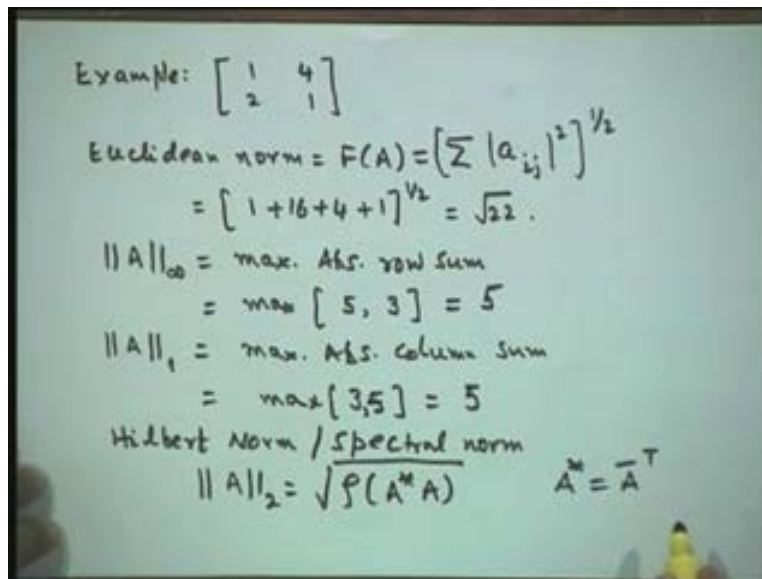 Example: [ 1 4
2 1 ]
Euclidean norm = F(A) = (Σ |a_ij|²)^1/2
= [ 1 + 16 + 4 + 1 ]^1/2 = √22 .
||A||_∞ = max. Abs. row sum
= max [ 5, 3 ] = 5
||A||_1 = max. Abs. column sum
= max [ 3,5 ] = 5
Hilbert Norm / Spectral norm
||A||_2 = √ρ(A*A) A* = Ā^T